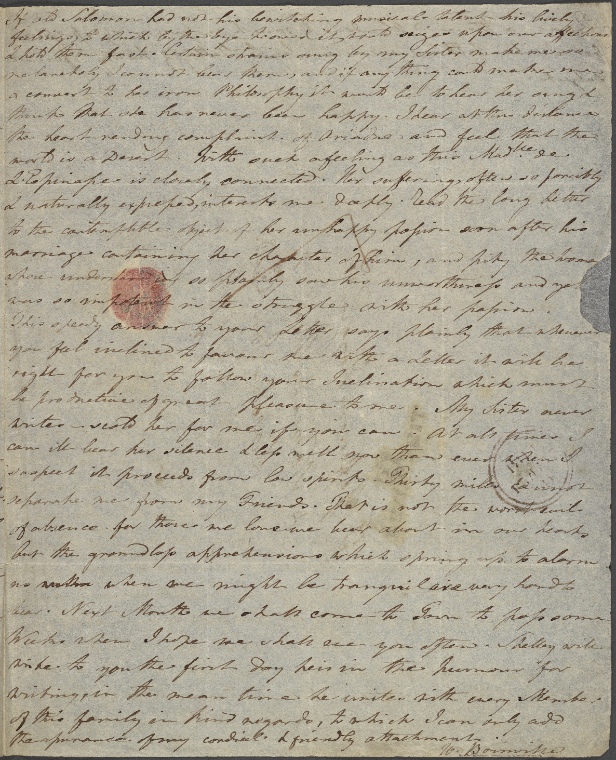 If old Solomon had not his bewitching musical talent his lively
feelings, to which by the bye it would seize upon our affections
& hold them fast. Certain strains sung by my Sister make me so
melancholy I cannot bear them, and if any thing could make me
a convert to her iron Philosophy it would be to hear her sing &
think that she has never been happy. I hear at this distance
the heart rending complaint of Ariadne and feel that the
world is a Desert. With such a feeling as this Mad.lle de
L'Espinasse is closely connected. Her sufferings often so forcibly
& naturally expressed, interests me deeply. Read the long letter
to the contemptible object of her unhappy passion soon after his
marriage containing her character of him, and pity the woman
whose understanding so plainly saw his unworthiness and yet
was so impotent in the struggle with her passion.
This speedy answer to your Letter says plainly that whenever
you feel inclined to favour me with a Letter it will be
right for you to follow your Inclination which must
be productive of great pleasure to me. My Sister never
writes - scold her for me if you can. At all times I
can ill bear her silence & less well now than ever when I
suspect it proceeds from low spirits. Thirty miles cannot
separate me from my Friends. That is not the worst evil
of absence for those we love we bear about in our hearts
but the groundless apprehensions which spring up to alarm
us when we might be tranquil are very hard to
bear. Next Month we shall come to Town to pass some
Weeks when I hope we shall see you often. Shelley will
write to you the first Day he is in the humour for
writing, in the mean time he unites with every Member
of this family in kind regards, to which I can only add
the assurance of my cordial & friendly attachment.
Boinville